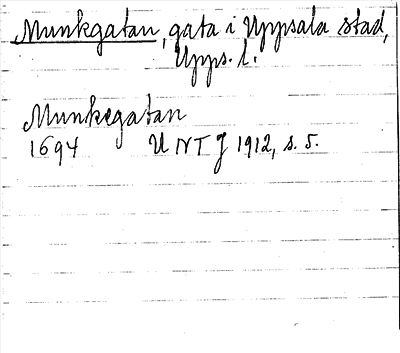 Munkgatan, gata i Uppsala stad,
Upps. l.
Munkegatan
1694 UNTJ 1912, s. 5.